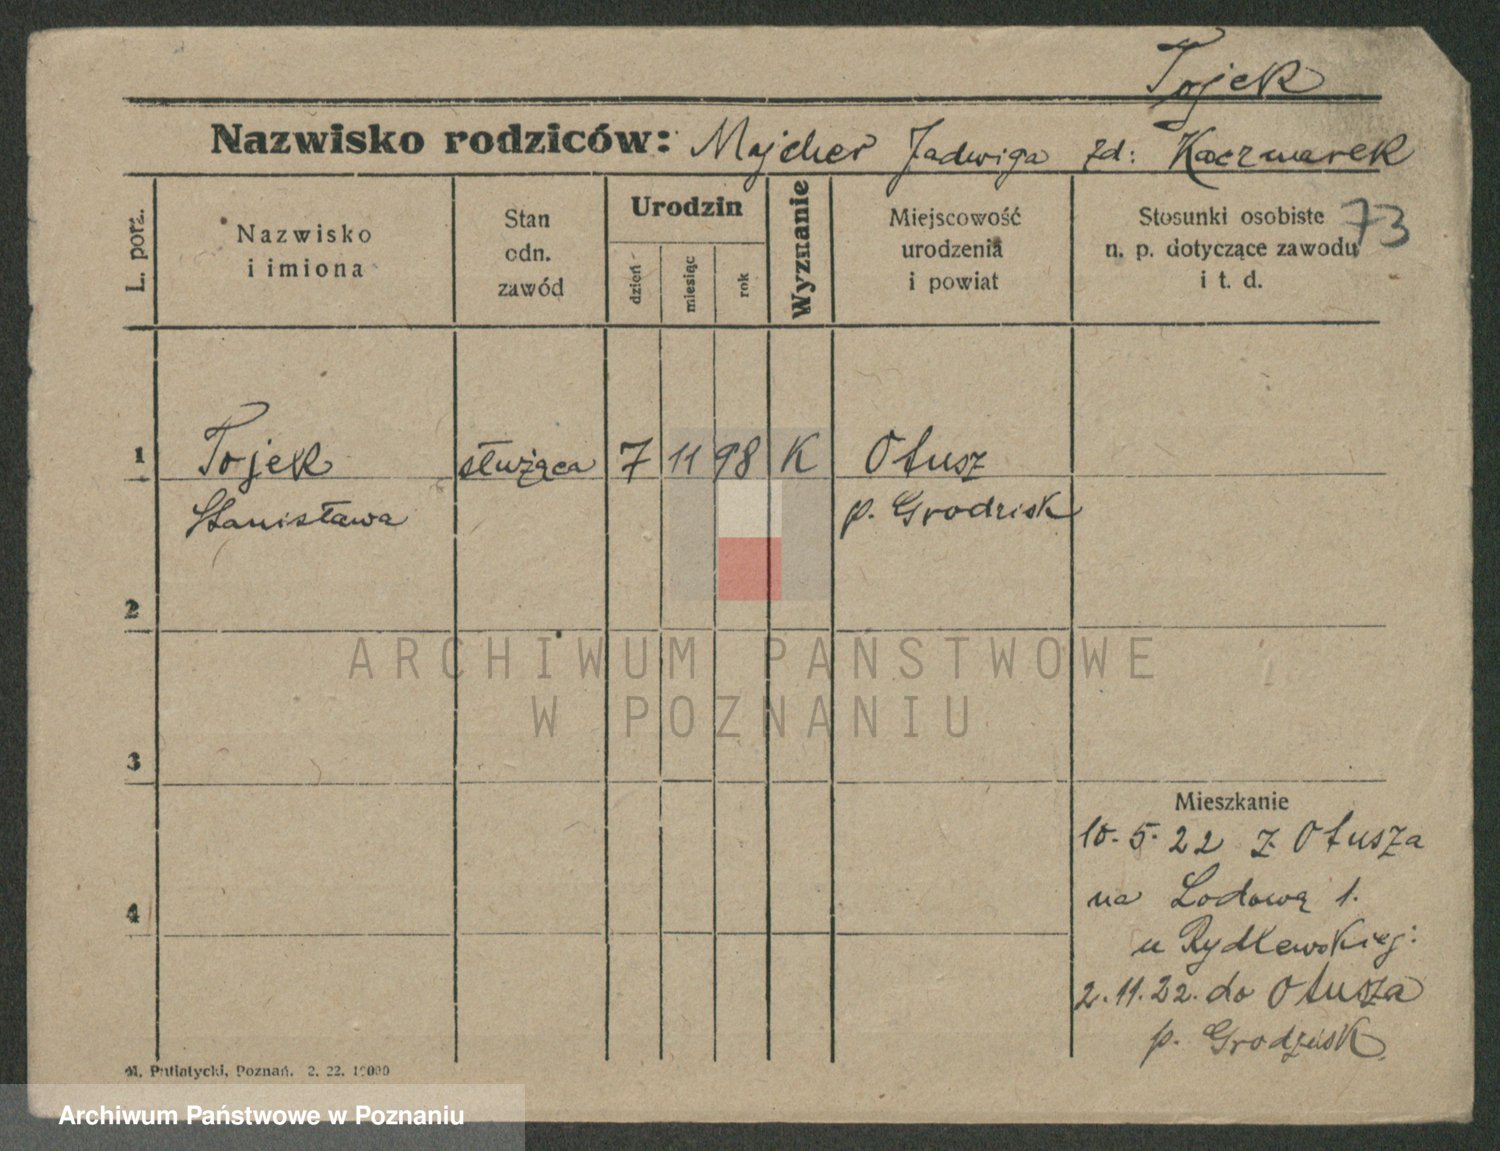 Tojek
Nazwisko rodziców: Majcher Jadwiga zd: Kaczmarek
L. porz.
Nazwisko
i imiona
Stan
odn.
zawód
Urodzin
dzień
miesiąc
rok
Wyznanie
Miejscowość
urodzenia
i powiat
Stosunki osobiste
n. p. dotyczące zawodu
i t. d.
73
1 Tojek służąca 7 11 98 K Otusz
Stanisława p. Grodzisk
2
ARCHIWUM PAŃSTWOWE
W POZNANIU
3
Mieszkanie
10. 5. 22 z Otusza
4
na Lodową 1.
u Rydlewskiej:
2. 11. 22. do Otusza
p. Grodzisk
M. Putiatycki, Poznań. 2. 22. 10000
Archiwum Państwowe w Poznaniu